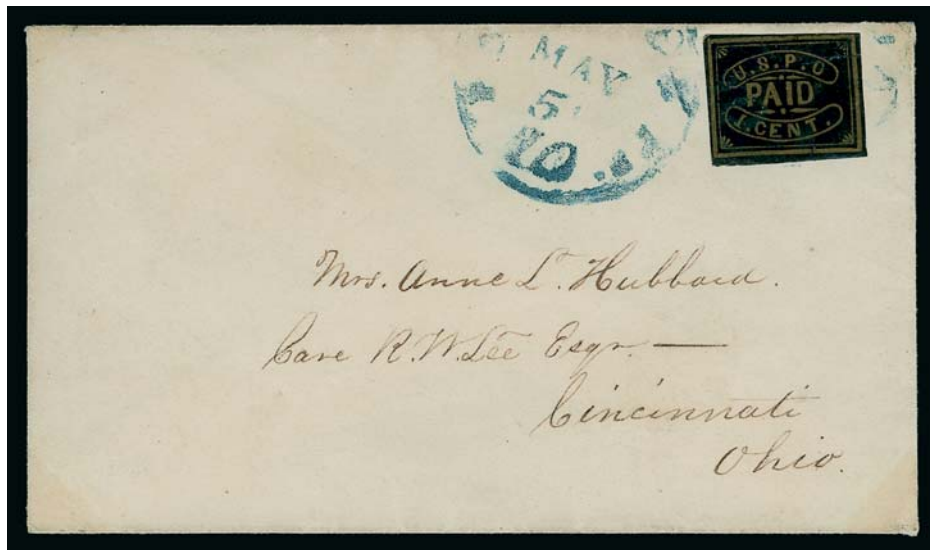 MAY
5
10
U.S.P.O
PAID
1.CENT.
Mrs. Anne L. Hubbard.
Care R.W.Lee Esqr. —
Cincinnati
Ohio.